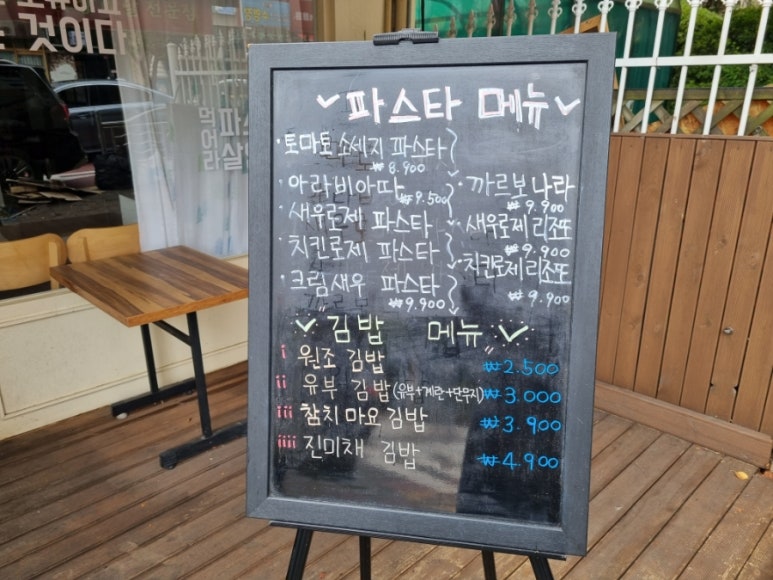 것이다
파스타 메뉴
· 토마토 소세지 파스타
₩8.900
· 아라비아따
₩9.500
· 새우로제 파스타
· 치킨로제 파스타
· 크림새우 파스타
₩9.900
· 까르보나라
₩9.900
· 새우로제 리조또
₩9.900
· 치킨로제 리조또
₩9.900
김밥 메뉴
i 원조 김밥 ₩2.500
ii 유부 김밥(유부+계란+단무지) ₩3.000
iii 참치마요 김밥 ₩3.900
iiii 진미채 김밥 ₩4.900